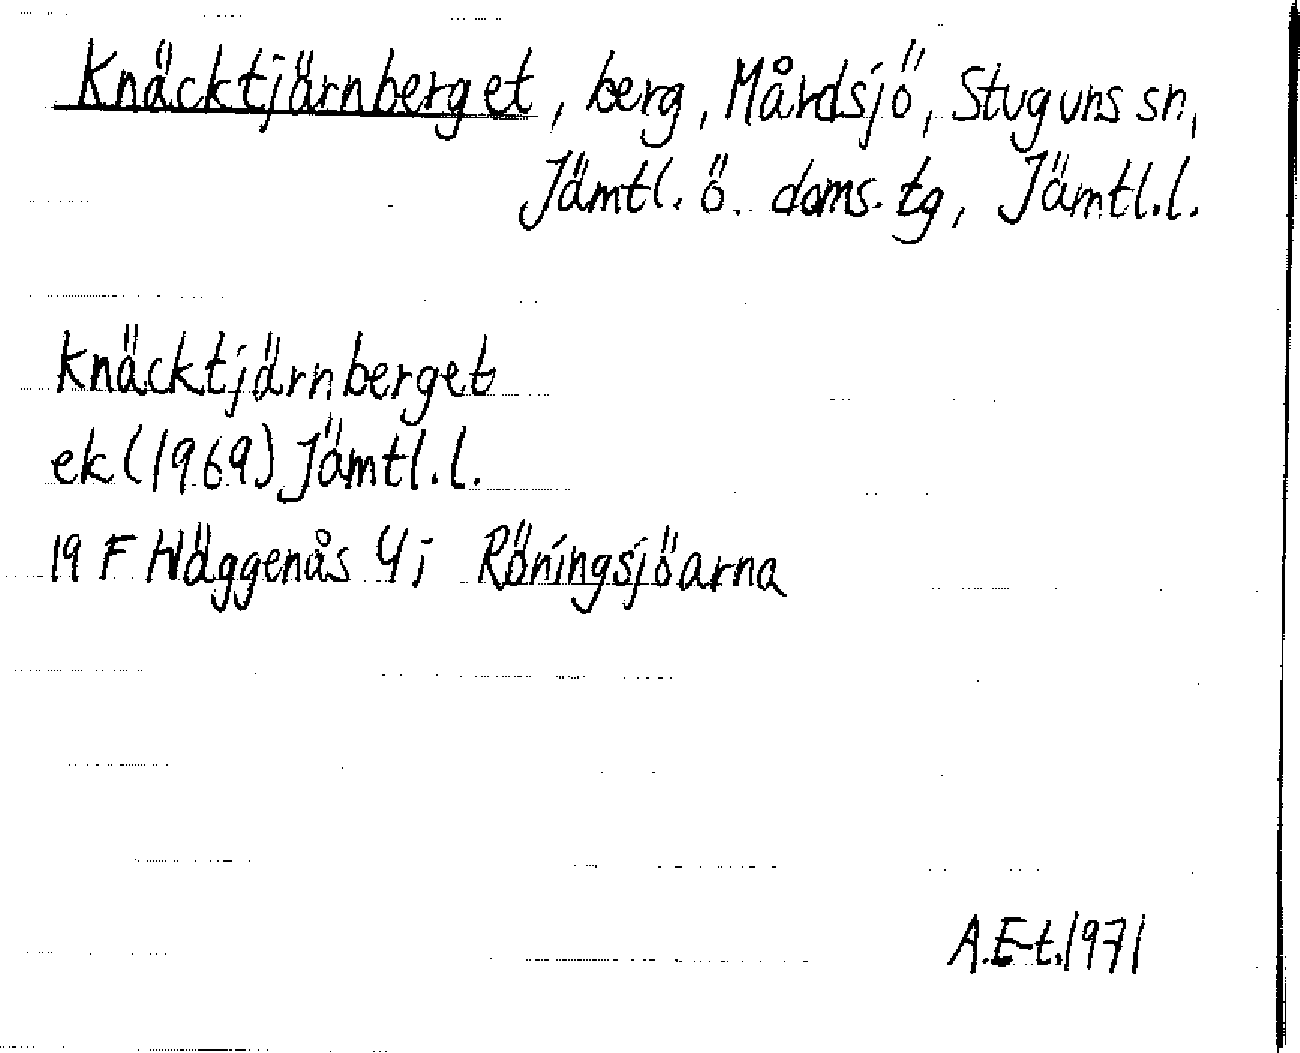 Knäcktjärnberget, berg, Mårdsjö, Stuguns sn,
Jämtl. ö. doms. tg, Jämtl.l.
Knäcktjärnberget
ek (1969) Jämtl.l.
19 F Häggenås 4 j Röningsjöarna
A.E-t.1971